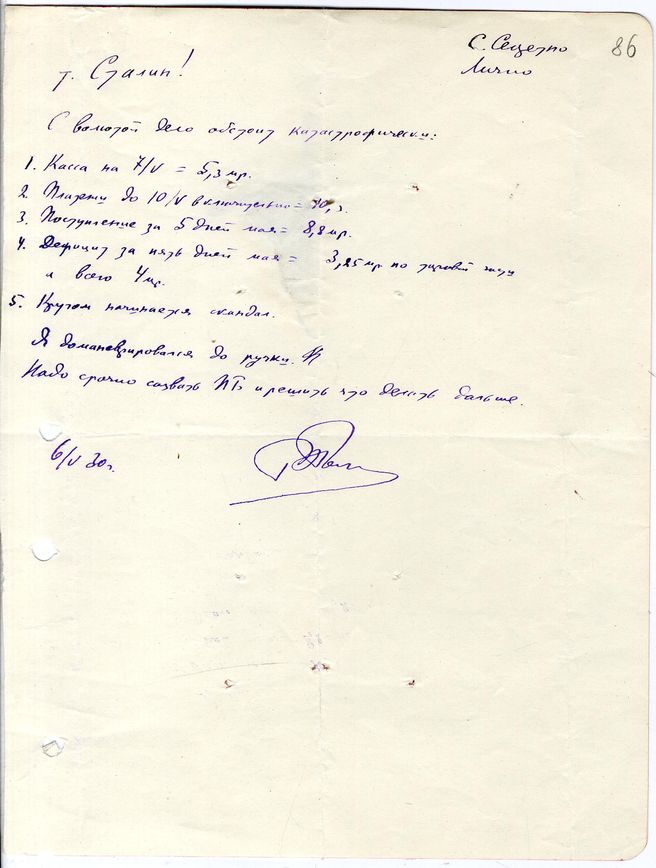 С. Секретно
86
Лично
т. Сталин!
С валютой дело обстоит катастрофически:
1. Касса на 7/V = 5,3 мр.
2. Платежи до 10/V включительно = 10,
3. Поступление за 5 дней мая = 8,8 мр.
4. Дефицит за пять дней мая = 3,25 мр по торговой части
и всего 4 мр.
5. Кругом начинается скандал.
Я доманеврировался до ручки.
Надо срочно созвать ПБ и решить что делать дальше.
6/V 30 г.